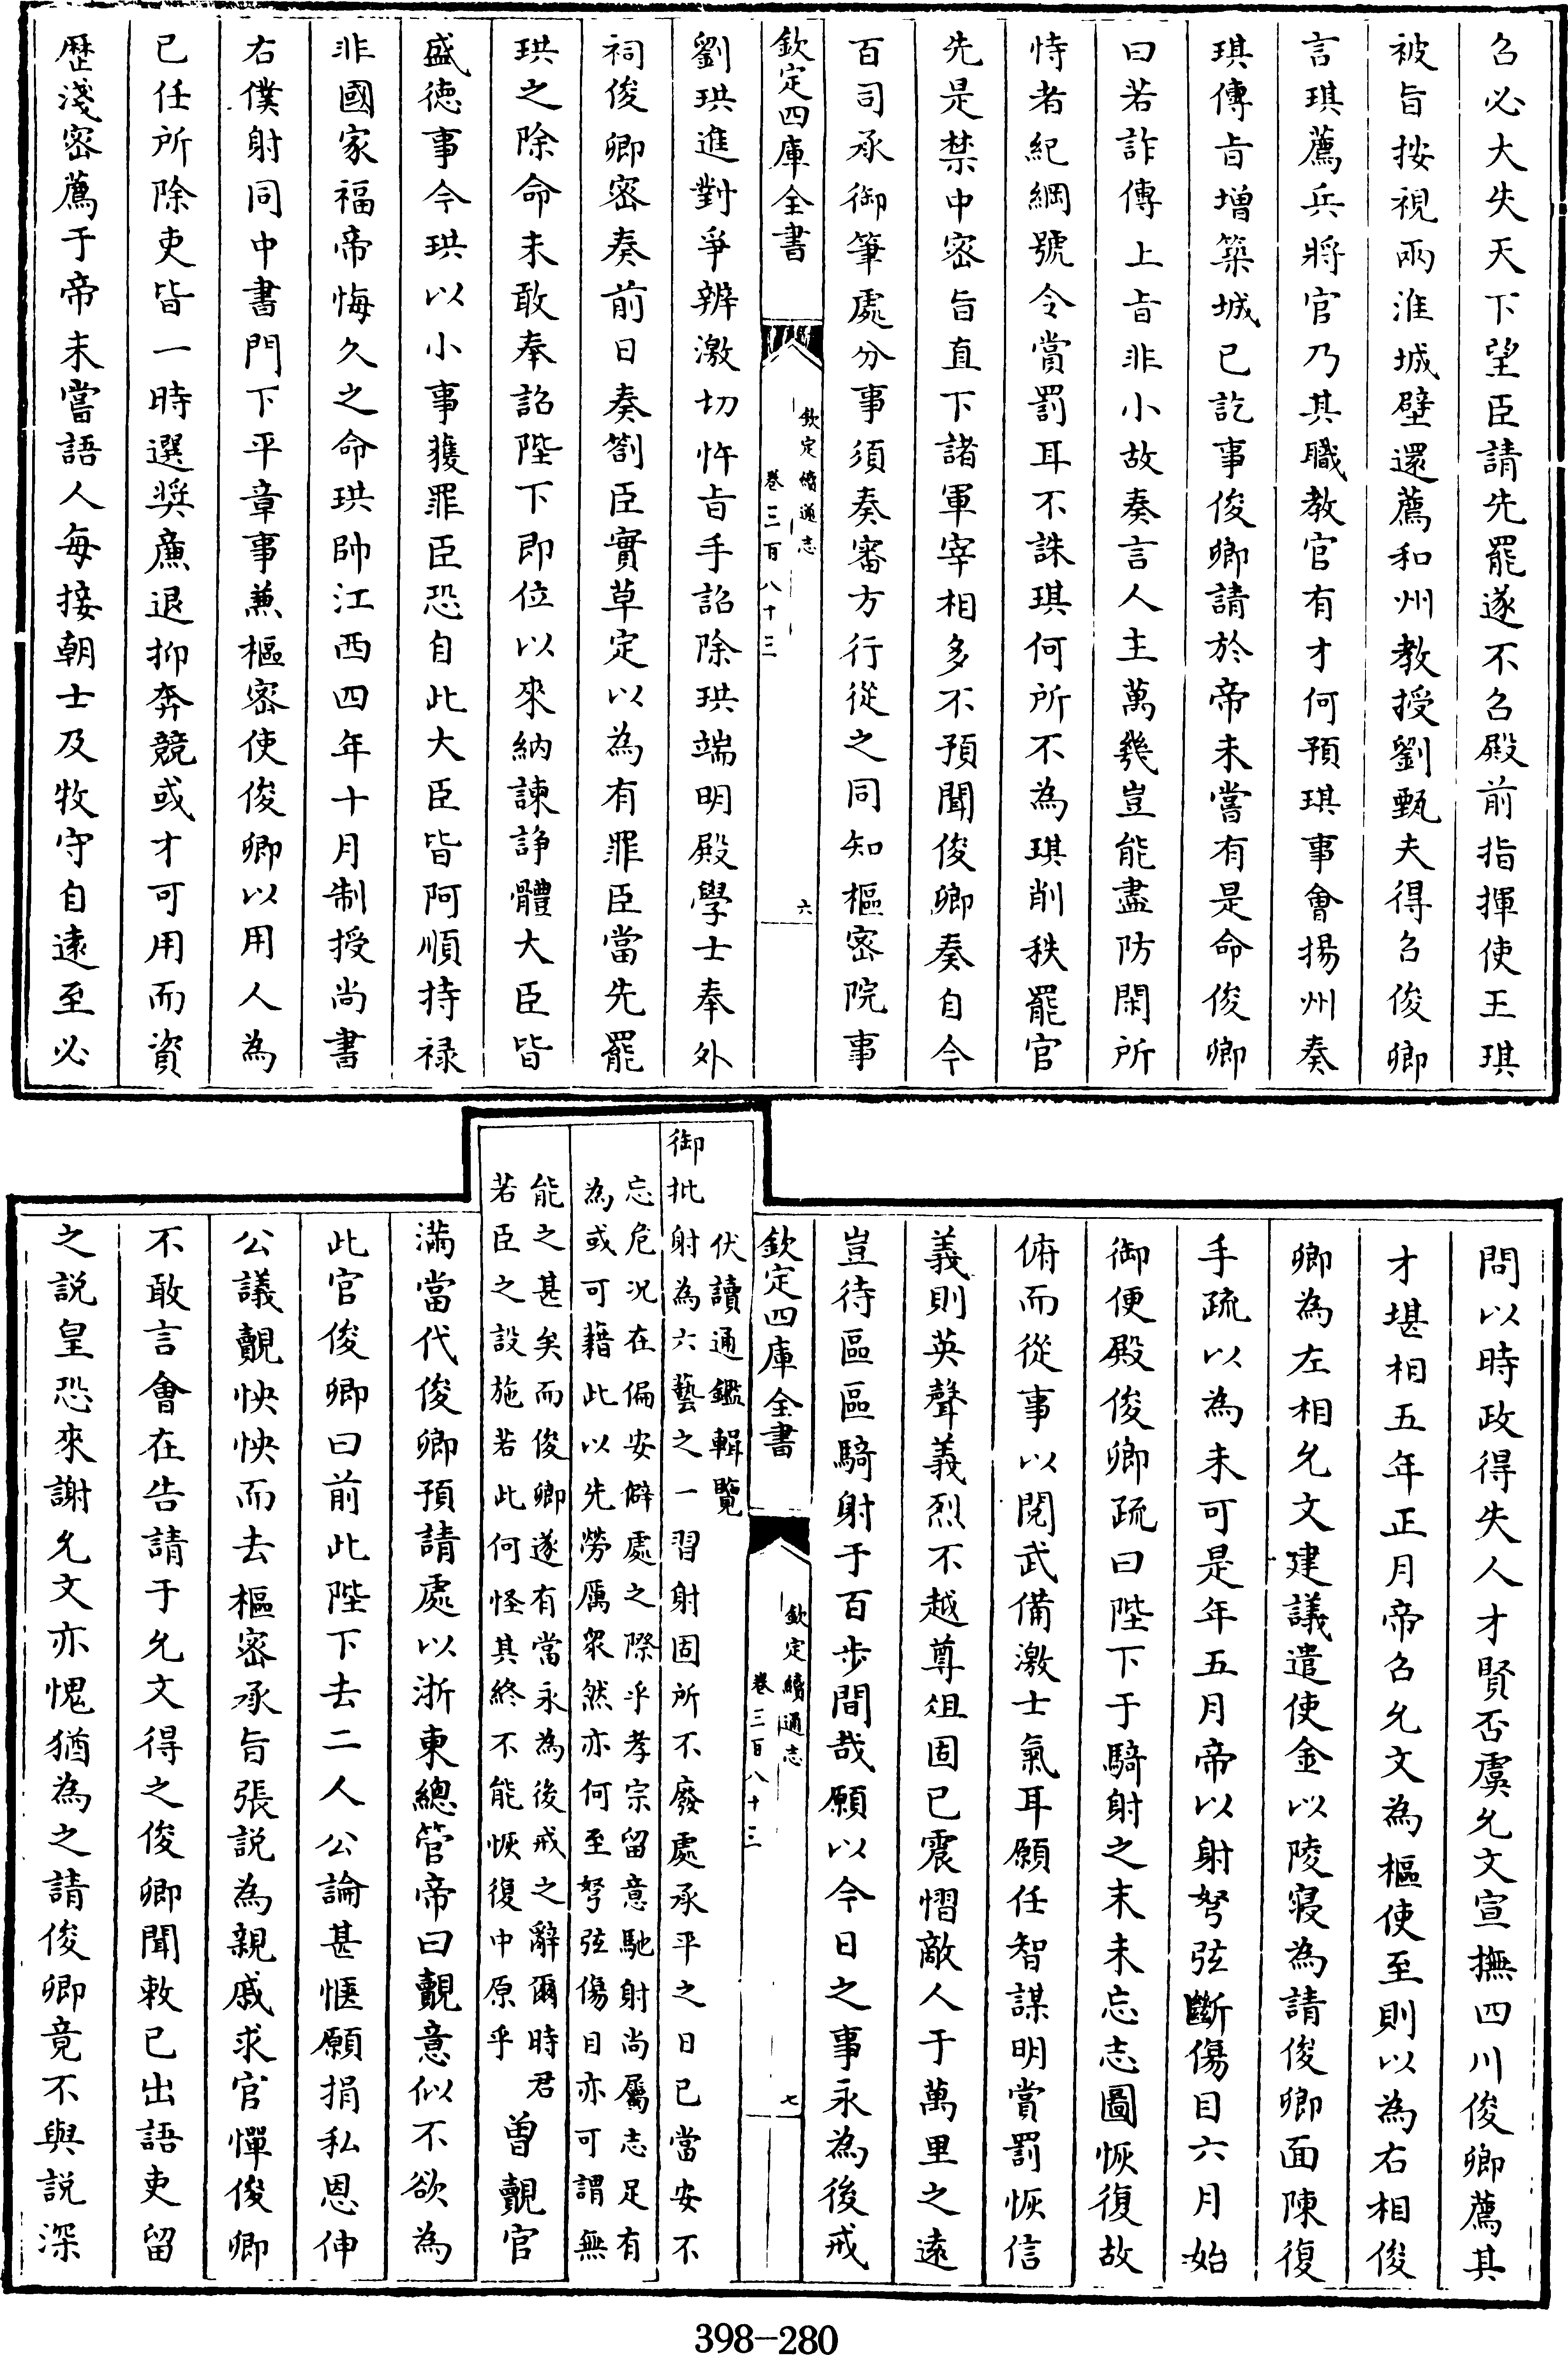 召必大失天下望臣請先罷遂不召殿前指揮使王琪
被旨按視兩淮城壁還薦和州教授劉甄夫得召俊卿
言琪薦兵將官乃其職教官有才何預琪事會揚州奏
琪傳旨增築城已訖事俊卿請於帝未嘗有是命俊卿
曰若詐傳上旨非小故奏言人主萬幾豈能盡防閑所
恃者紀綱號令賞罰耳不誅琪何所不為琪削秩罷官
先是禁中密旨直下諸軍宰相多不預聞俊卿奏自今
百司承御筆處分事須奏審方行從之同知樞密院事
欽定四庫全書
欽定續通志
卷三百八十三
六
劉珙進對爭辨激切忤旨手詔除珙端明殿學士奉外
祠俊卿密奏前日奏劄臣實草定以為有罪臣當先罷
珙之除命未敢奉詔陛下即位以來納諫諍體大臣皆
盛徳事今珙以小事獲罪臣恐自此大臣皆阿順持禄
非國家福帝悔久之命珙帥江西四年十月制授尚書
右僕射同中書門下平章事兼樞密使俊卿以用人為
已任所除吏皆一時選奬亷退抑奔競或才可用而資
歴淺密薦于帝未嘗語人每接朝士及牧守自逺至必
問以時政得失人才賢否虞允文宣撫四川俊卿薦其
才堪相五年正月帝召允文為樞使至則以為右相俊
卿為左相允文建議遣使金以陵寝為請俊卿面陳復
手疏以為未可是年五月帝以射弩弦斷傷目六月始
御便殿俊卿疏曰陛下于騎射之末未忘志圖恢復故
俯而從事以閲武備激士氣耳願任智謀明賞罰恢信
義則英聲義烈不越尊俎固已震慴敵人于萬里之逺
豈待區區騎射于百步間哉願以今日之事永為後戒
欽定四庫全書
欽定續通志
卷三百八十三
七
御批
伏讀通鑑輯覽
射為六藝之一習射固所不廢處承平之日已當安不
忘危况在偏安僻處之際乎孝宗留意馳射尚屬志足有
為或可藉此以先勞厲衆然亦何至弩弦傷目亦可謂無
能之甚矣而俊卿遂有當永為後戒之辭爾時君
若臣之設施若此何怪其終不能恢復中原乎
曽覿官
滿當代俊卿預請處以浙東總管帝曰覿意似不欲為
此官俊卿曰前此陛下去二人公論甚愜願捐私恩伸
公議覿怏怏而去樞密承旨張説為親戚求官憚俊卿
不敢言會在告請于允文得之俊卿聞敕已出語吏留
之説皇恐來謝允文亦愧猶為之請俊卿竟不與説深
398-280